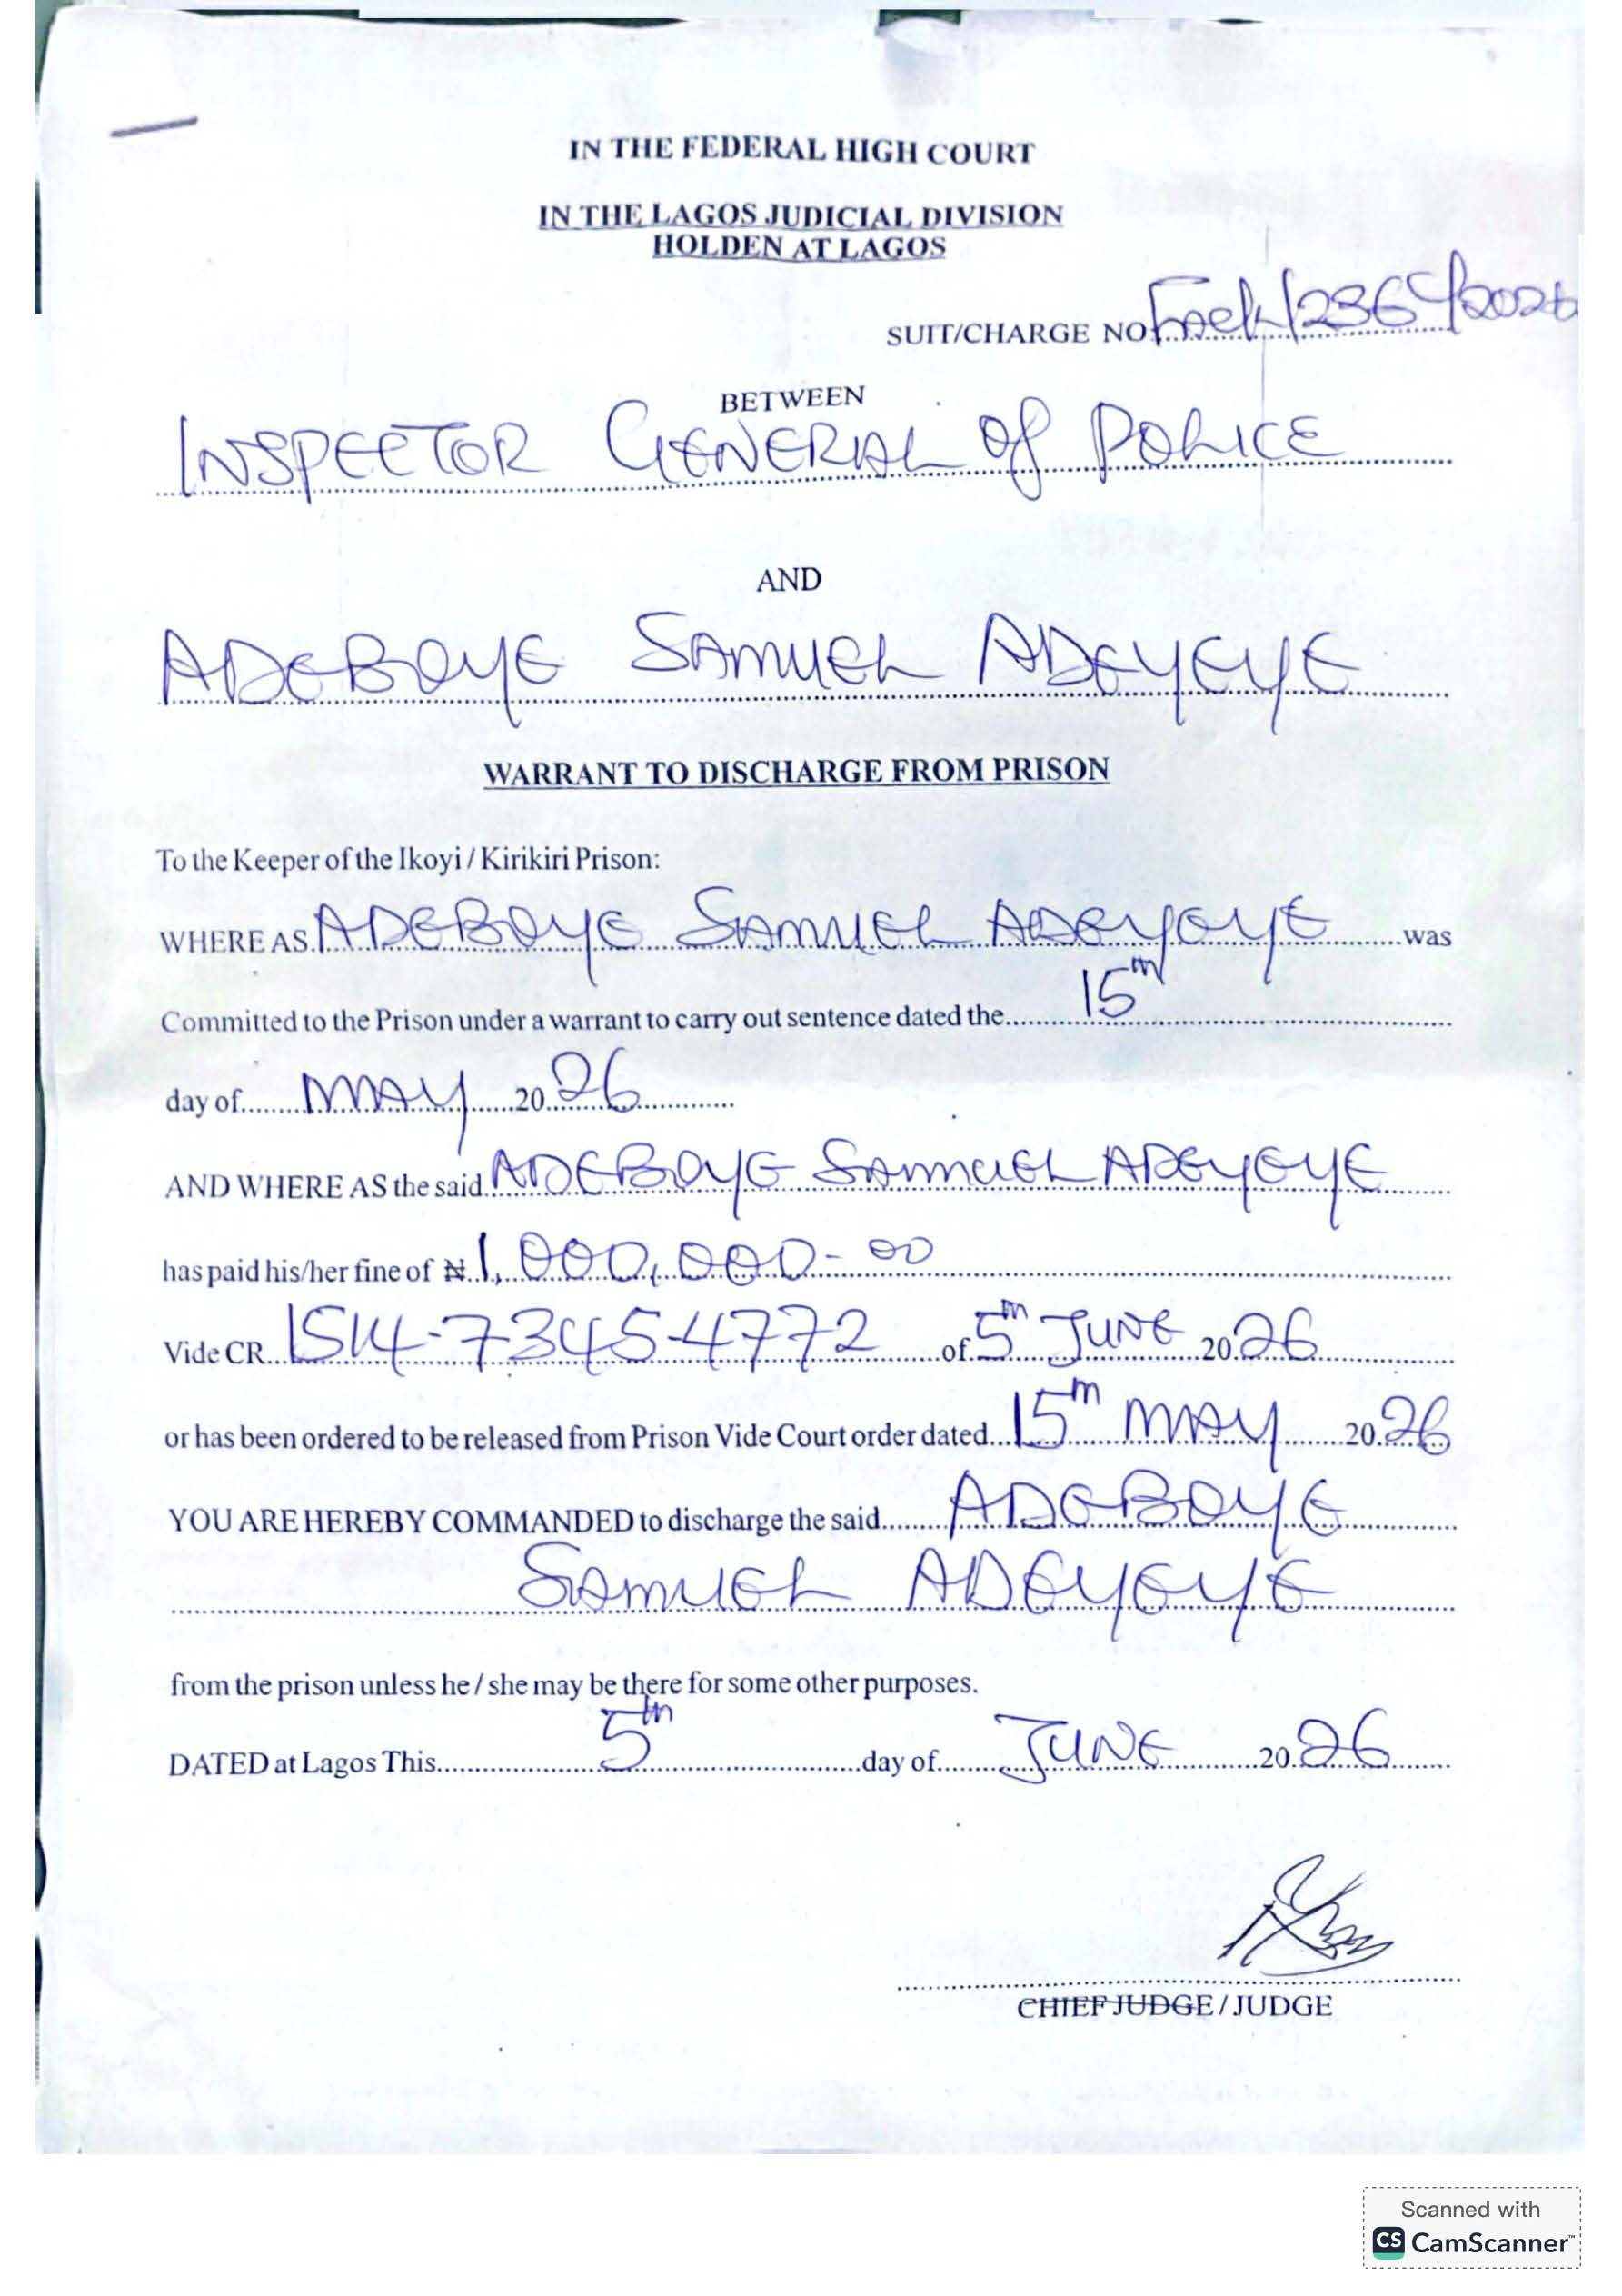 IN THE FEDERAL HIGH COURT
IN THE LAGOS JUDICIAL DIVISION
HOLDEN AT LAGOS
SUIT/CHARGE NO
BETWEEN
INSPECTOR GENERAL Of POLICE
AND
ADEBOYE SAMUEL ADEYEYE
WARRANT TO DISCHARGE FROM PRISON
To the Keeper of the Ikoyi / Kirikiri Prison:
WHERE AS ADEBOYE SAMUEL ADEYEYE was
Committed to the Prison under a warrant to carry out sentence dated the 15th
day of MAY 2026
AND WHERE AS the said ADEBOYE SAMMUEL ADEYEYE
has paid his/her fine of ₦ 1,000,000-00
Vide CR 1514-7345-4772 of 5th JUNE 2026
or has been ordered to be released from Prison Vide Court order dated 15th MAY 2026
YOU ARE HEREBY COMMANDED to discharge the said ADEBOYE
SAMUEL ADEYEYE
from the prison unless he / she may be there for some other purposes.
DATED at Lagos This 5th day of JUNE 2026
CHIEF JUDGE / JUDGE
Scanned with
CS CamScanner™